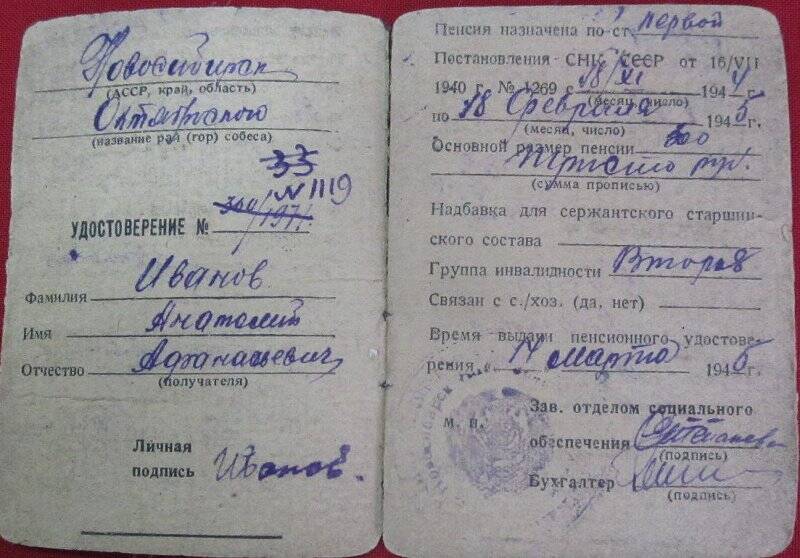 Новосибирск
(АССР, край, область)
Октябрьского
(название рай (гор) собеса)
33
N 1119
УДОСТОВЕРЕНИЕ №
Фамилия Иванов
Имя Анатолий
Отчество Афанасьевич
(получателя)
Личная
подпись Иванов.
Пенсия назначена по ст. первой
Постановления СНК СССР от 16/VII
1940 г. № 1269 с 18/XI 1944 г.
(месяц, число)
по 18 февраля 1945 г.
(месяц, число)
Основной размер пенсии 300
Триста руб.
(сумма прописью)
Надбавка для сержантского старшин-
ского состава
Группа инвалидности Вторая
Связан с с./хоз. (да, нет)
Время выдачи пенсионного удостове-
рения 14 марта 1945 г.
Зав. отделом социального
М. П.
обеспечения
(подпись)
Бухгалтер
(подпись)